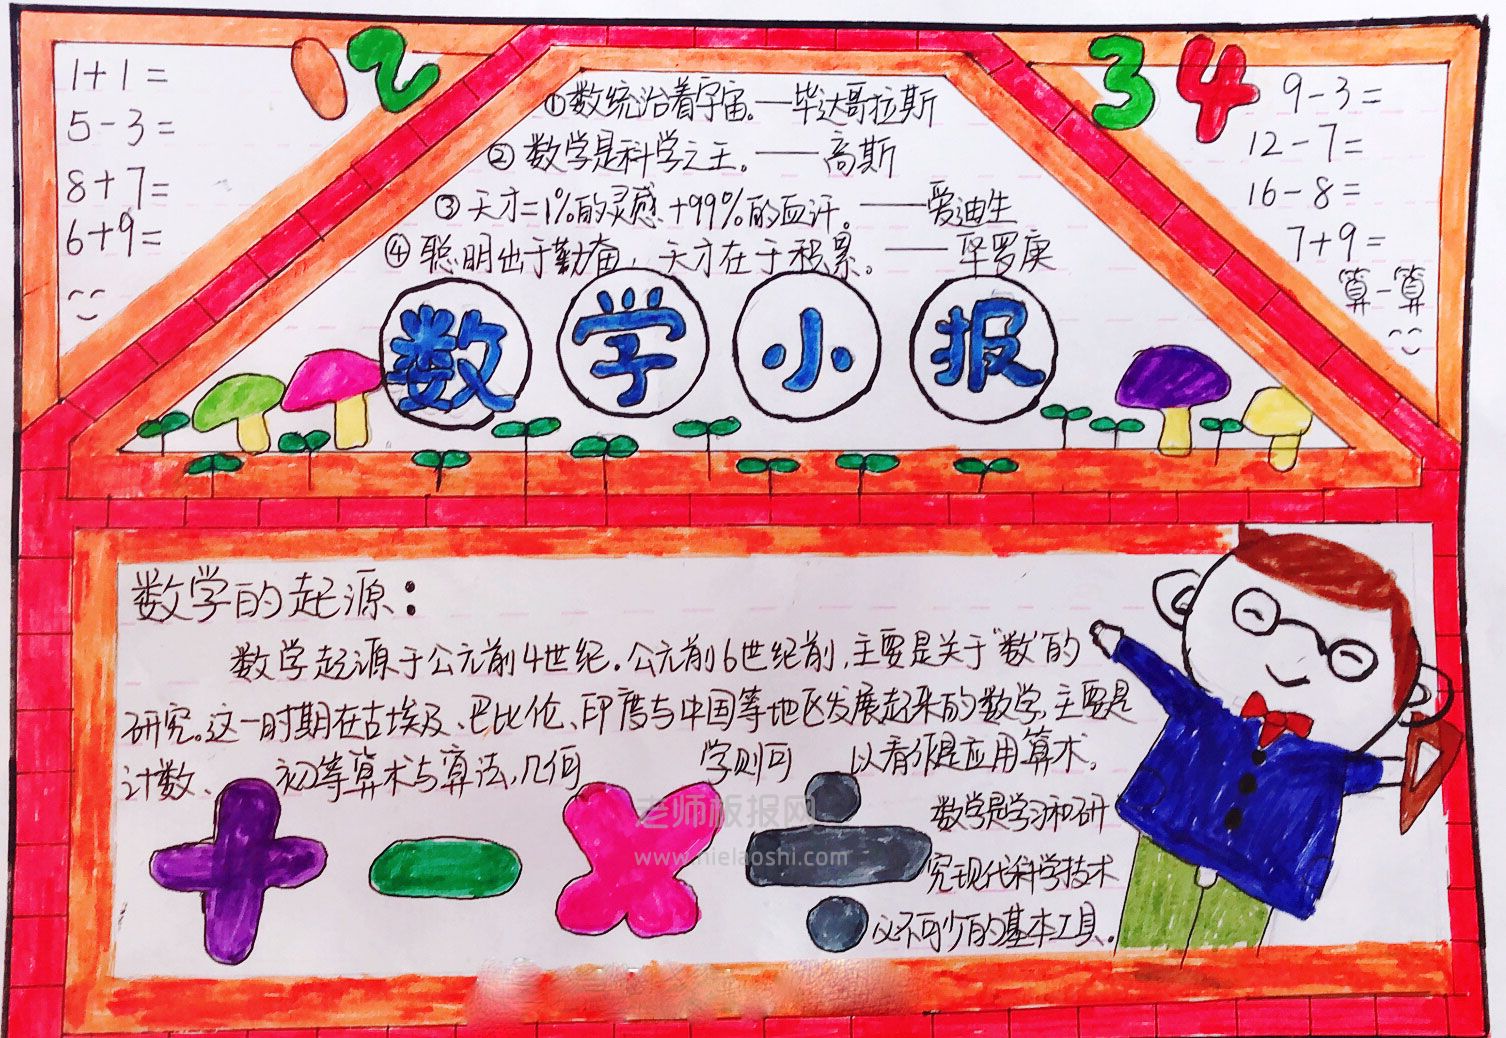 1+1=
5-3=
8+7=
6+9=
1 2
3 4
9-3=
12-7=
16-8=
7+9=
算一算
①数统治着宇宙。——毕达哥拉斯
②数学是科学之王。——高斯
③天才=1%的灵感+99%的血汗。——爱迪生
④聪明出于勤奋，天才在于积累。——华罗庚
数学小报
数学的起源：
数学起源于公元前4世纪.公元前6世纪前,主要是关于"数"的
研究。这一时期在古埃及、巴比伦、印度与中国等地区发展起来的数学,主要是
计数、初等算术与算法,几何学则可以看作是应用算术。
数学是学习和研
究现代科学技术
必不可少的基本工具.
老师板报网
www.nielaoshi.com